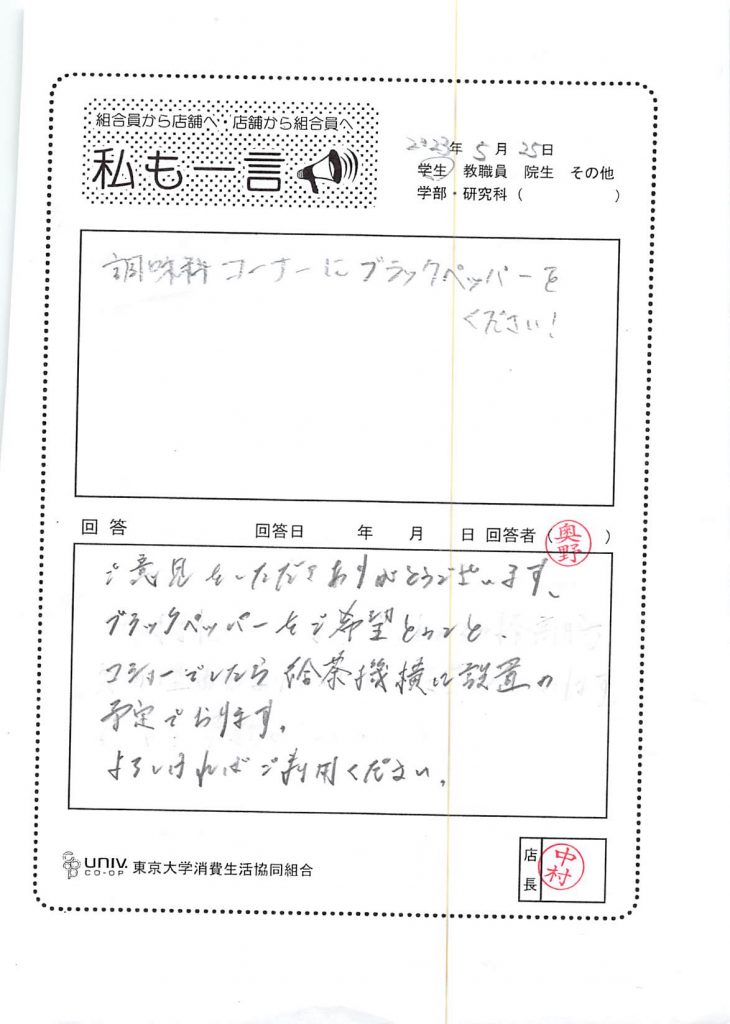 組合員から店舗へ・店舗から組合員へ
私も一言
2023年 5月 25日
学生 教職員 院生 その他
学部・研究科（ ）
調味料コーナーにブラックペッパーを
ください！
回答 回答日 年 月 日 回答者（奥野）
ご意見をいただきありがとうございます。
ブラックペッパーをご希望とのこと
コショーでしたら給茶機横に設置の
予定でおります。
よろしければご利用ください。
UNIV. CO-OP 東京大学消費生活協同組合
店長 中村